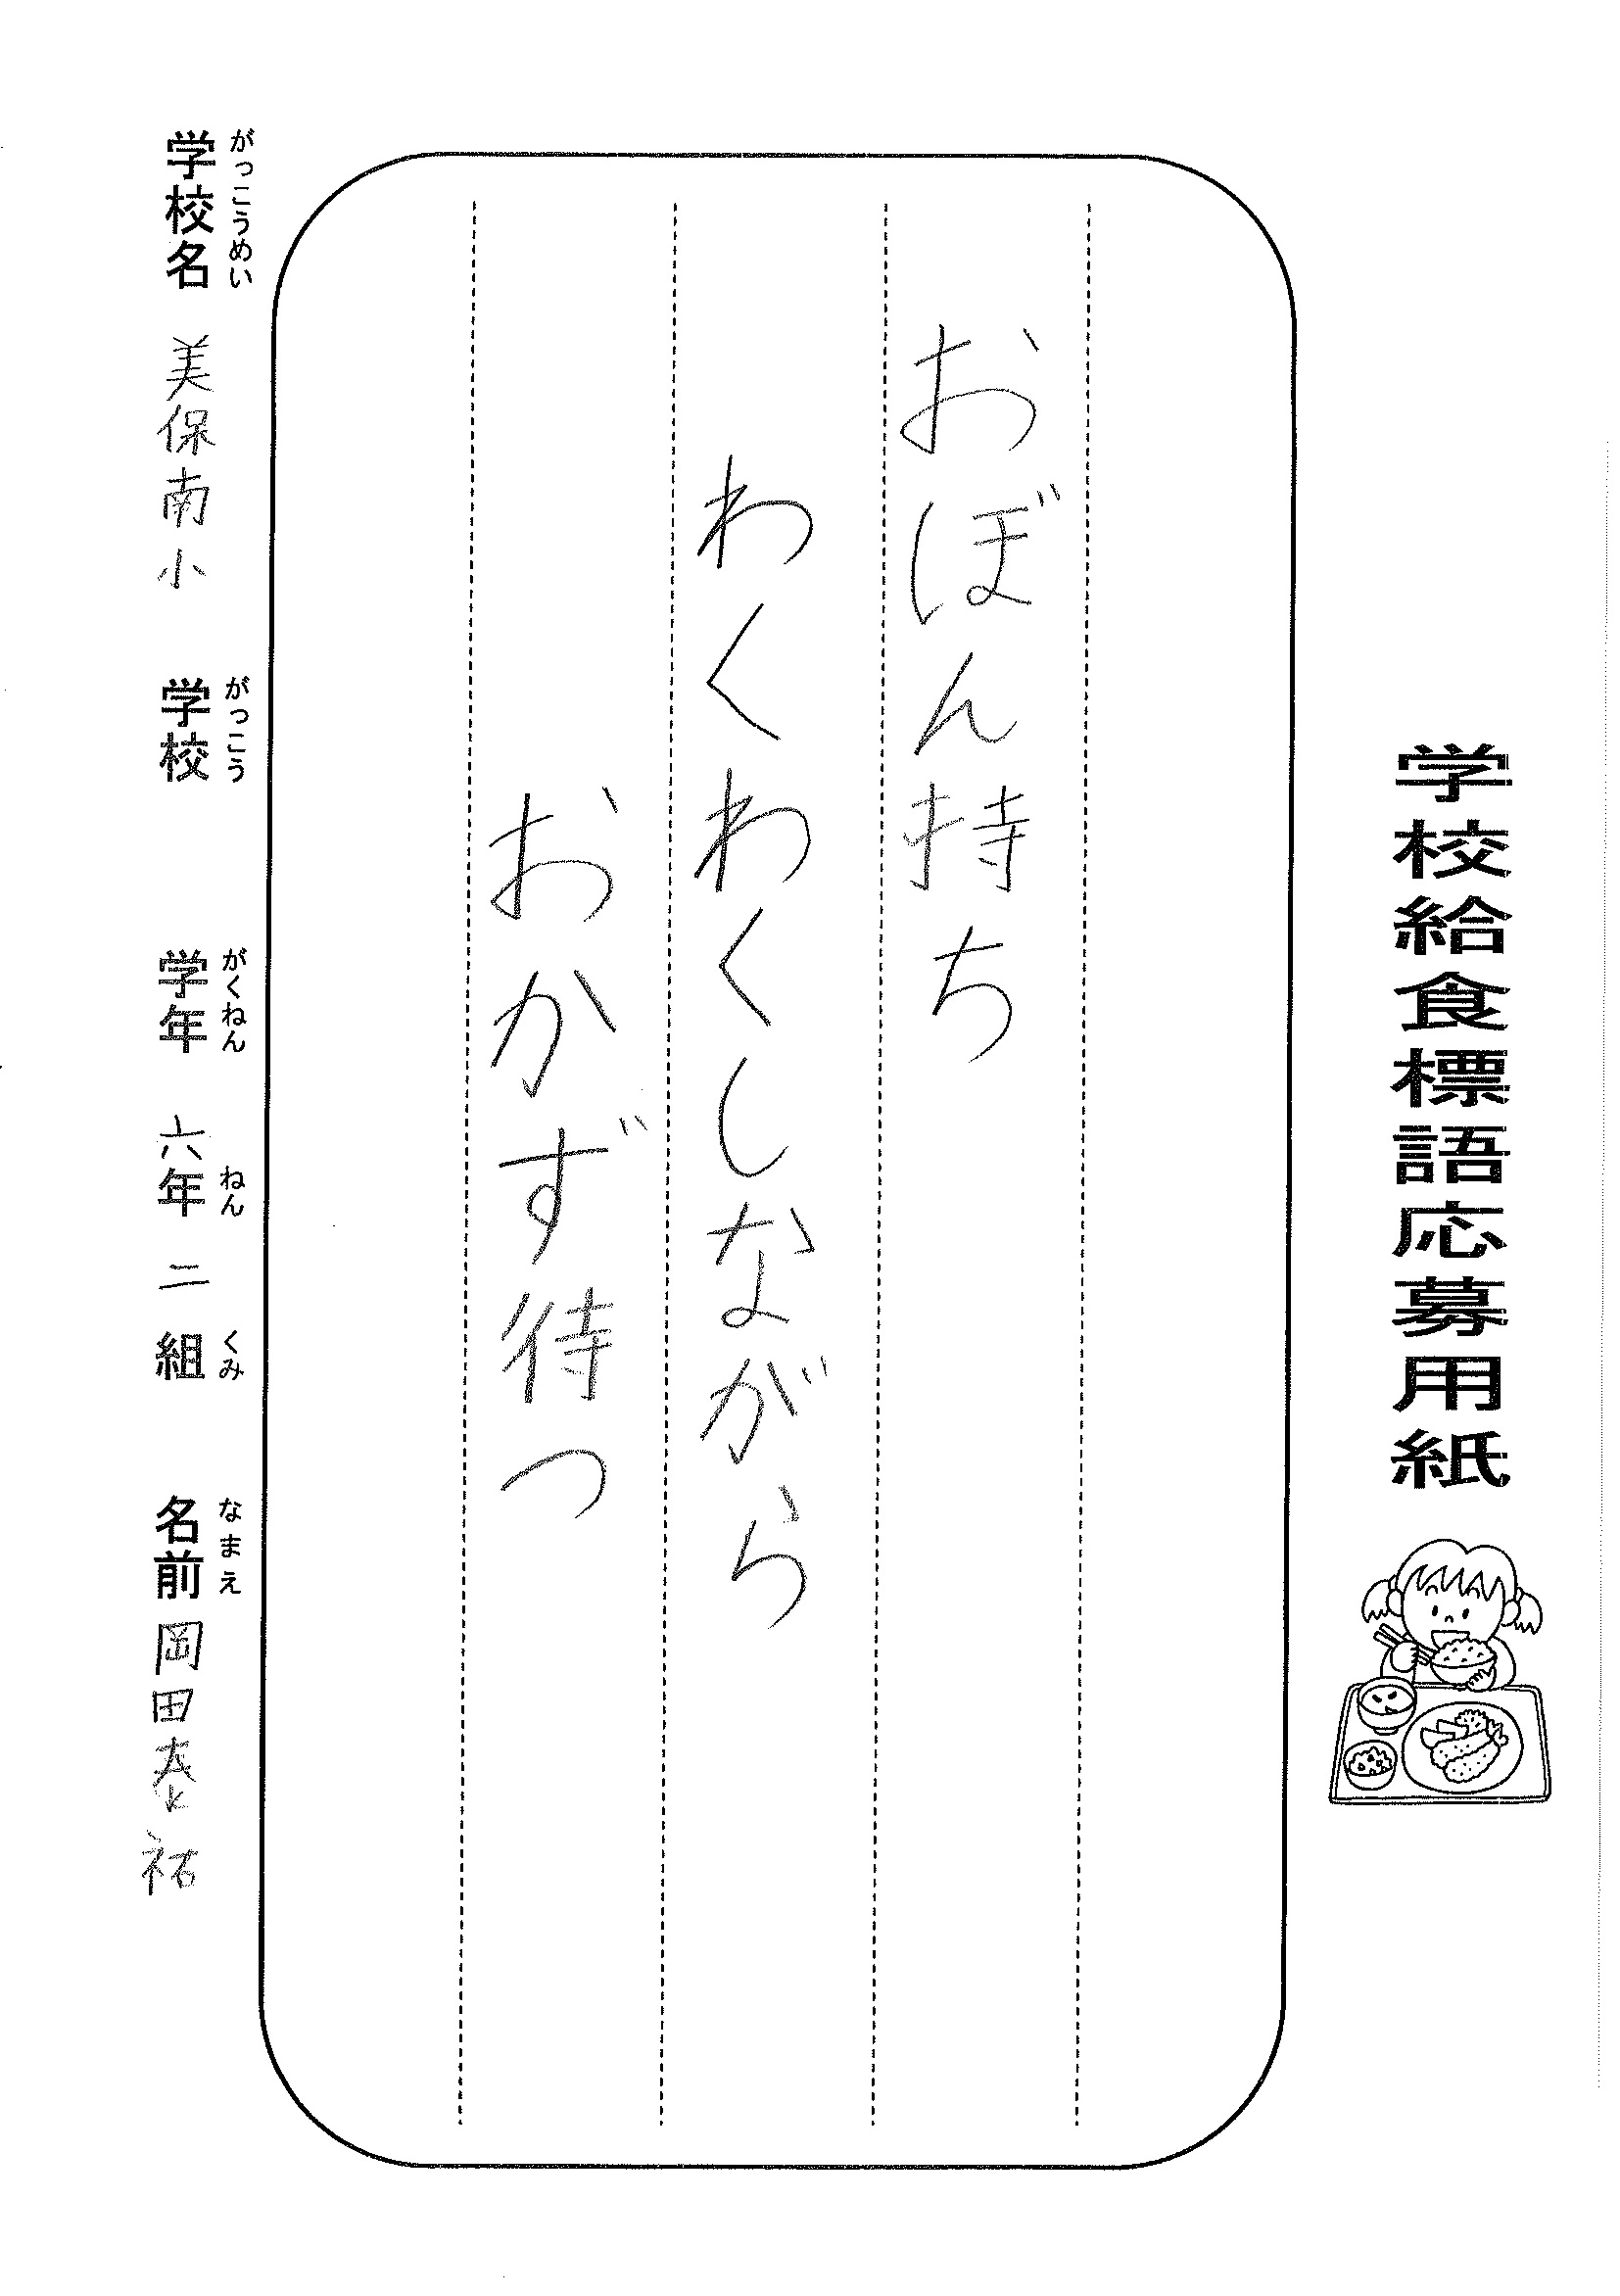 学校給食標語応募用紙
おぼん持ち
わくわくしながら
おかず待つ
がっこうめい がっこう がくねん ねん くみ なまえ
学校名 美保南小 学校 学年 六年 二組 名前 岡田泰祐